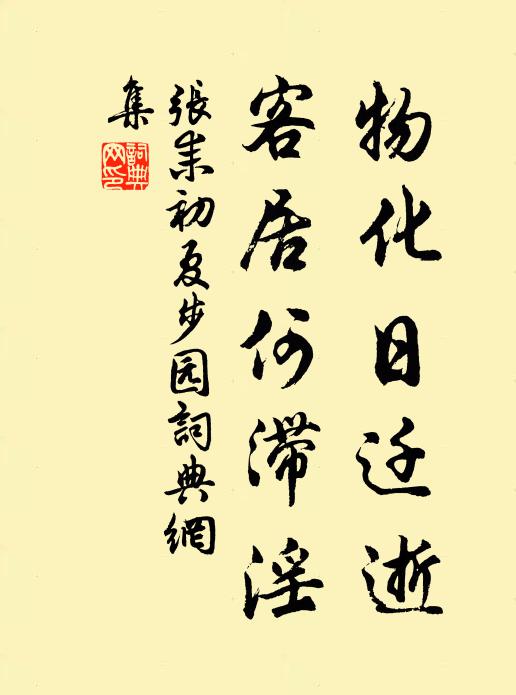 物化日迁逝
客居何滞淫
張耒初夏步园詞典網
集
詞典
网印